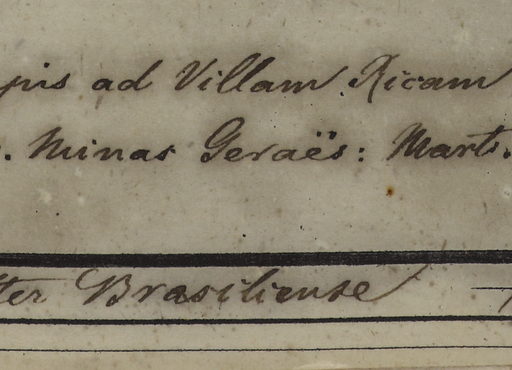 pis ad Villam Ricam
. Minas Geraës: Mart.
ter Brasiliense